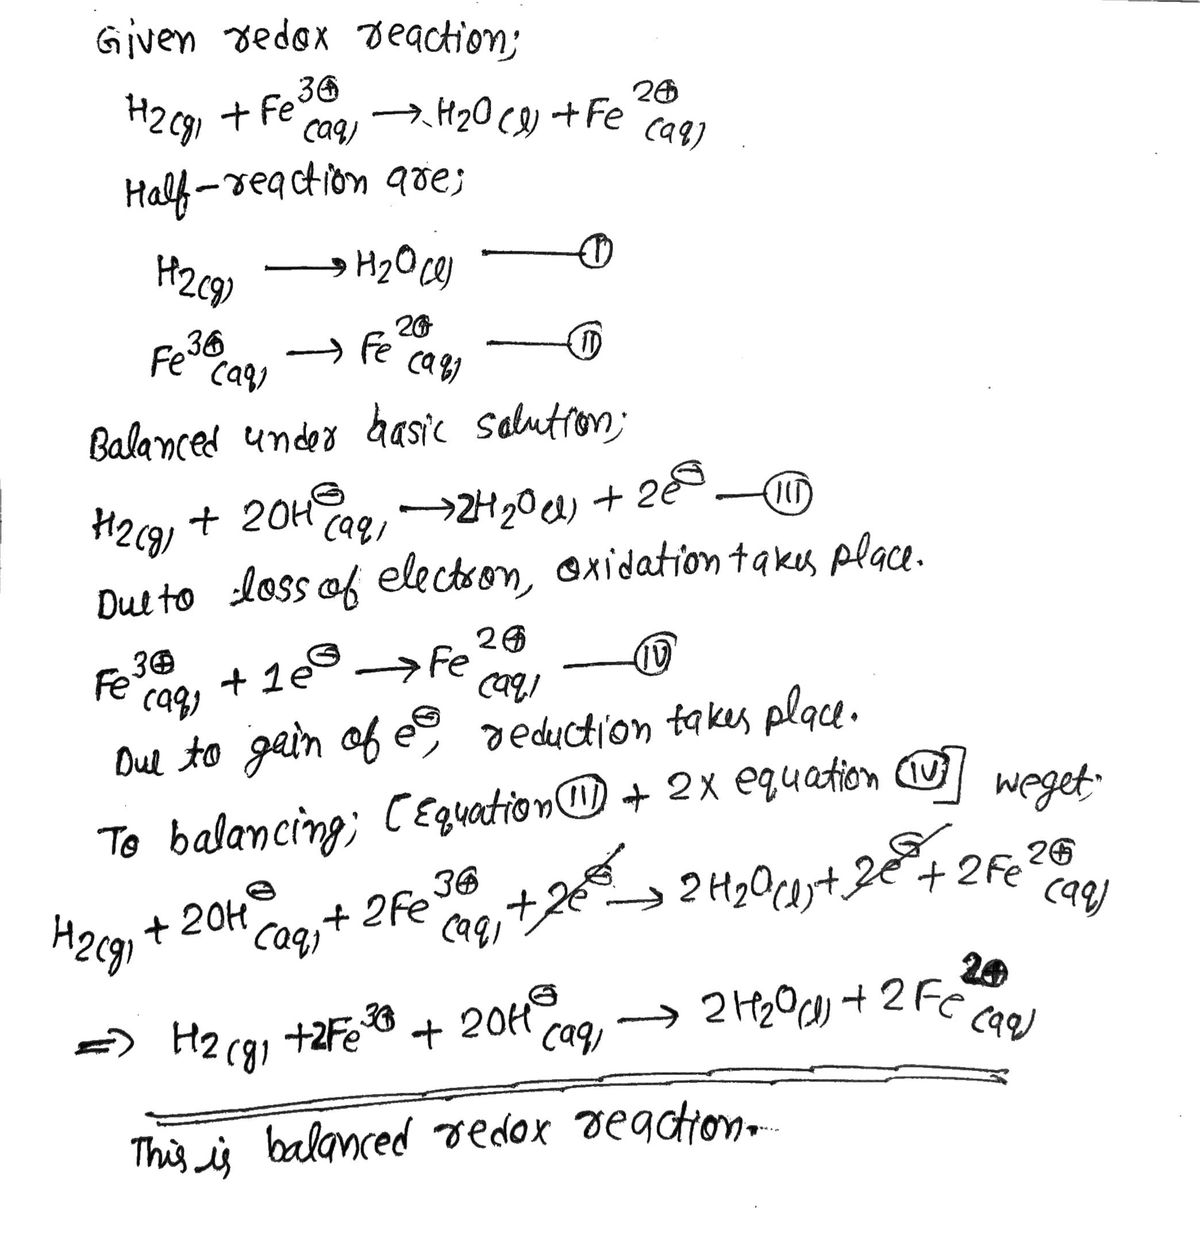 Given redox reaction;
H₂(g) + Fe³⊕(aq) → H₂O(l) + Fe²⊕(aq)
Half-reaction are;
H₂(g) ⟶ H₂O(l) —— Ⓘ
Fe³⊕(aq) ⟶ Fe²⊕(aq) —— (II)
Balanced under basic solution;
H₂(g) + 2OH⊖(aq) → 2H₂O(l) + 2e⊖ — (III)
Due to loss of electron, oxidation takes place.
Fe³⊕(aq) + 1e⊖ → Fe²⊕(aq) — (IV)
Due to gain of e⊖, reduction takes place.
To balancing; [Equation (III) + 2 x equation (IV)] weget;
H₂(g) + 2OH⊖(aq) + 2Fe³⊕(aq) + 2e⊖ → 2H₂O(l) + 2e⊖ + 2Fe²⊕(aq)
⇒ H₂(g) + 2Fe³⊕ + 2OH⊖(aq) → 2H₂O(l) + 2Fe²⊕(aq)
This is balanced redox reaction.